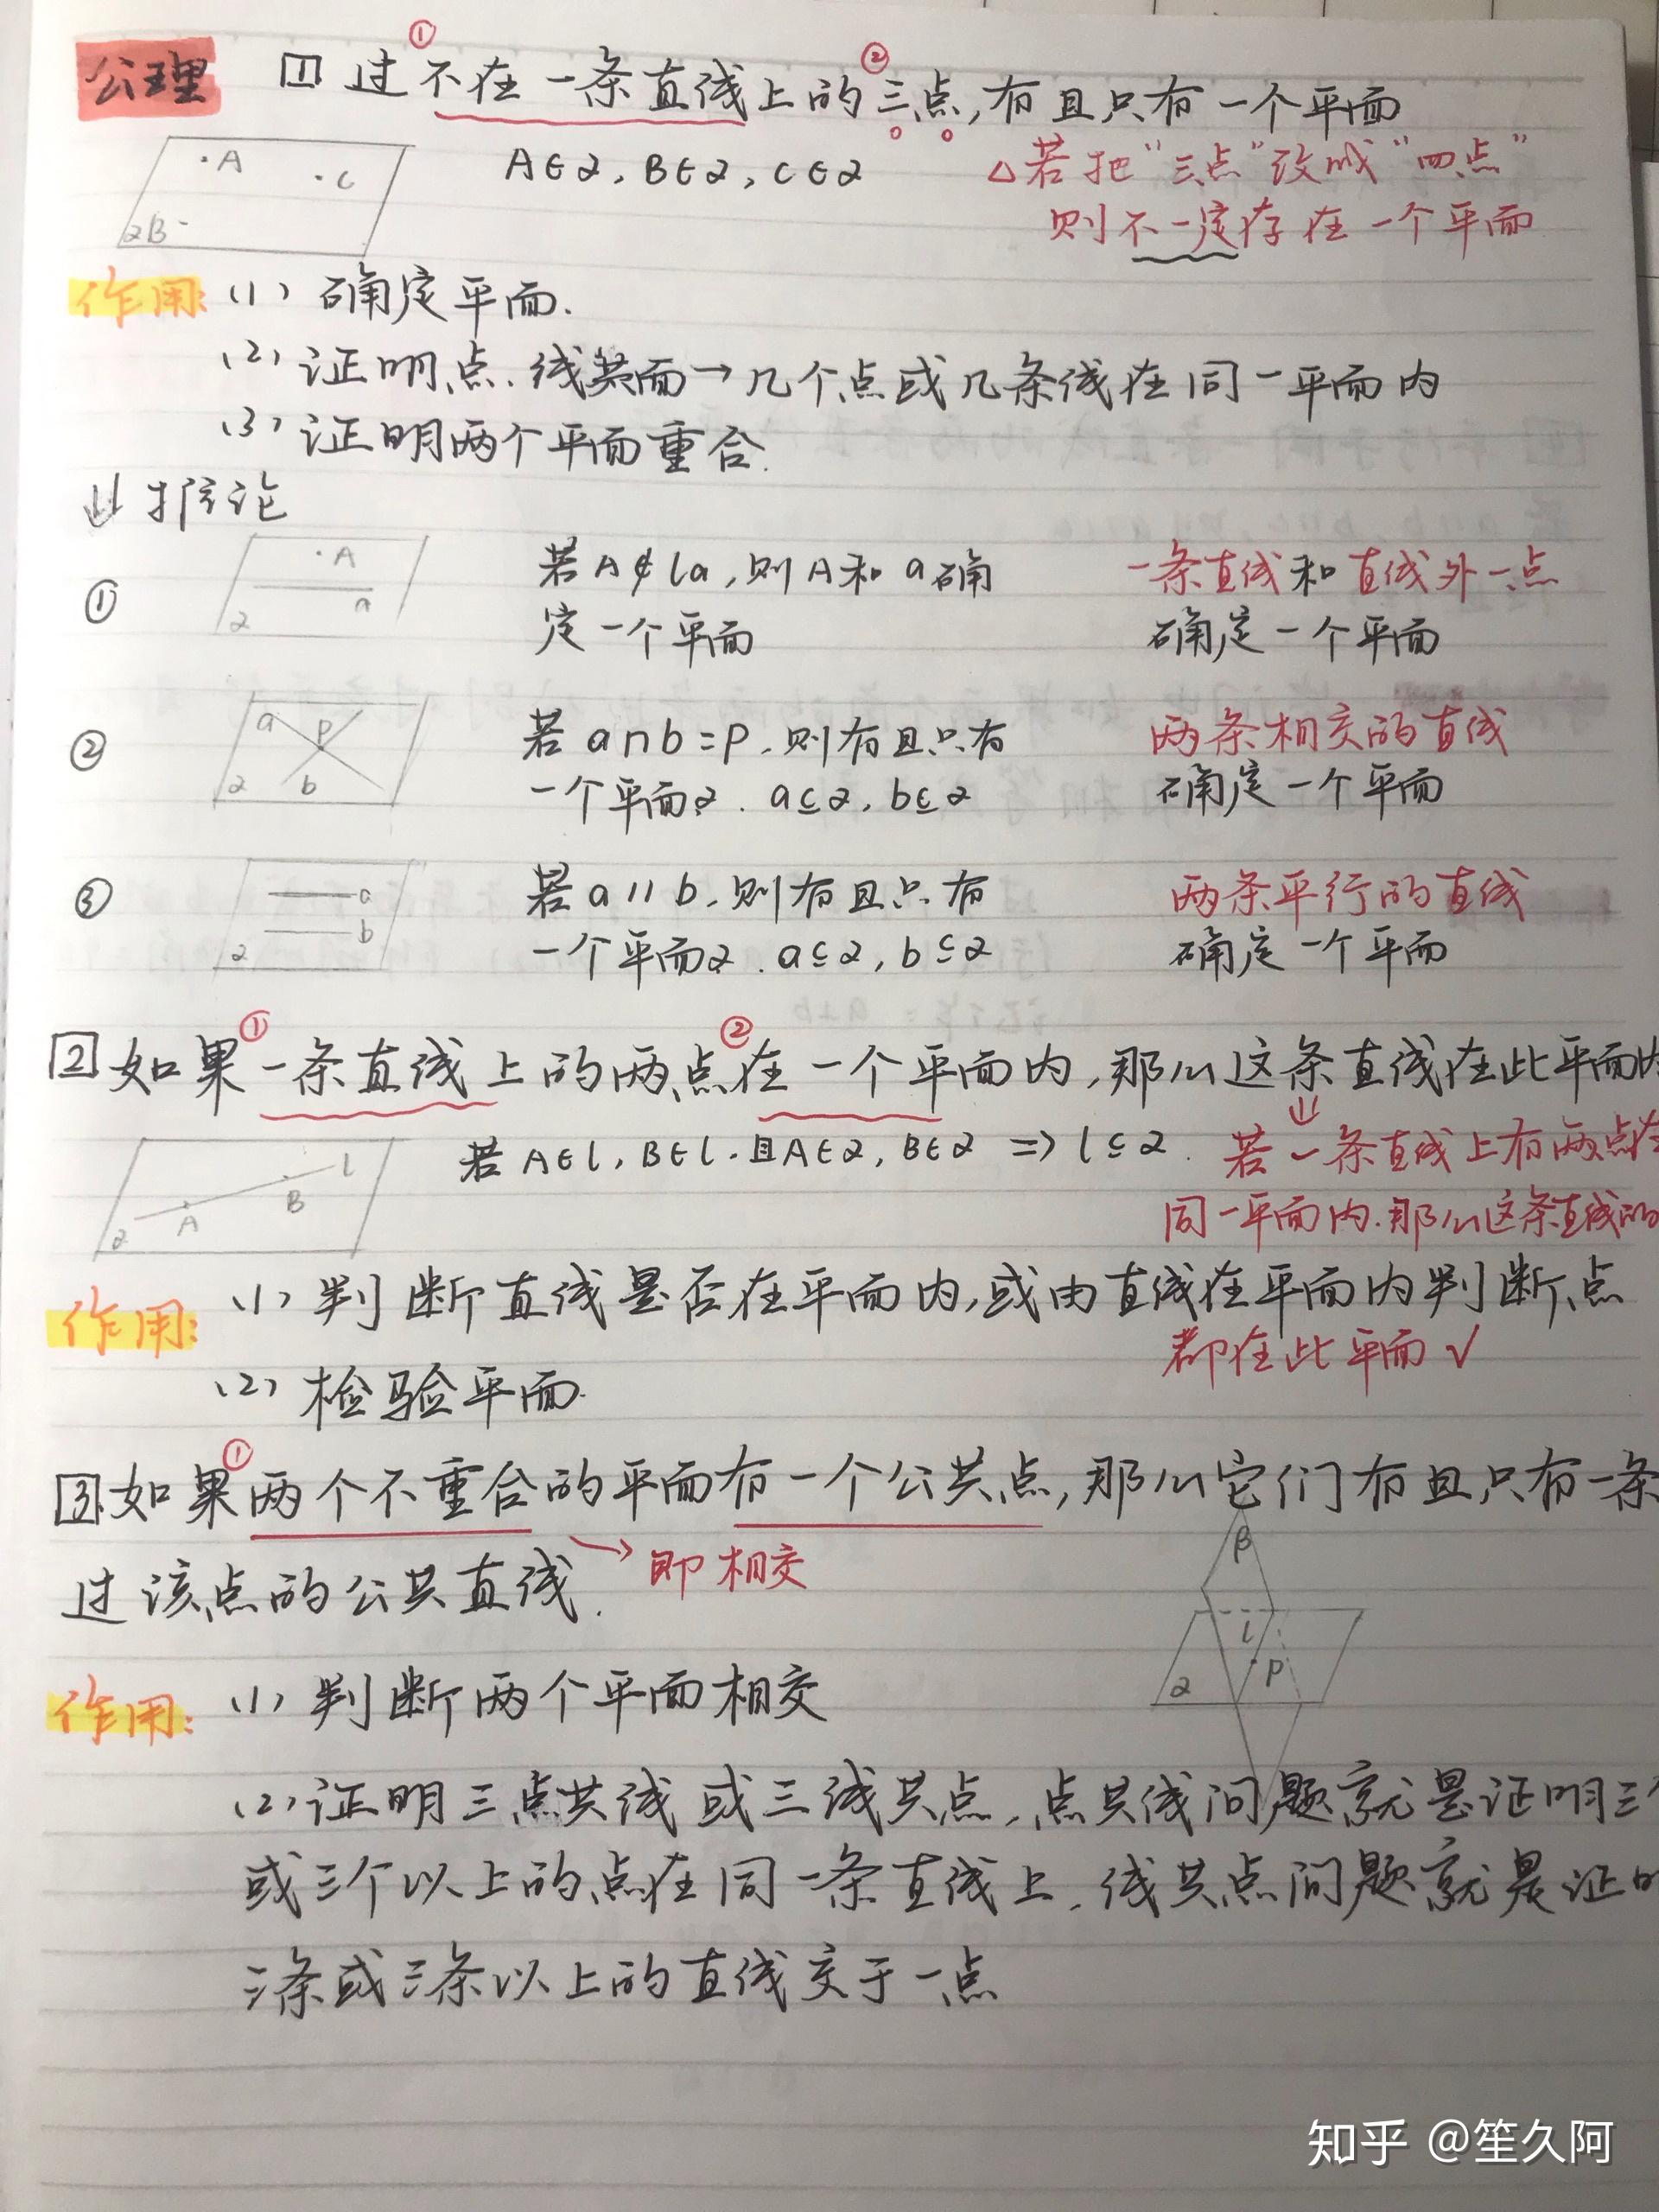 公理 1 过不在一条直线上的三点,有且只有一个平面
① ②
·A ·C αB
A∈α, B∈α, C∈α
△若把"三点"改成"四点"
则不一定存在一个平面
作用: (1) 确定平面.
(2) 证明点.线共面→几个点或几条线在同一平面内
(3) 证明两个平面重合.
⇓ 推论
① ·A a α 若A∉la,则A和a确 一条直线和直线外一点
定一个平面 确定一个平面
② a P b α 若a∩b=P.则有且只有 两条相交的直线
一个平面α. a⊆α, b⊆α 确定一个平面
③ a b α 若a∥b,则有且只有 两条平行的直线
一个平面α. a⊆α, b⊆α 确定一个平面
① ②
2 如果一条直线上的两点在一个平面内,那么这条直线在此平面内
α A B l 若A∈l, B∈l.且A∈α, B∈α ⇒ l⊆α. ⇓ 若一条直线上有两点在
同一平面内.那么这条直线的
作用: (1) 判断直线是否在平面内,或由直线在平面内判断点
都在此平面√
(2) 检验平面.
①
3 如果两个不重合的平面有一个公共点,那么它们有且只有一条
过该点的公共直线. →即相交
β l P α
作用: (1) 判断两个平面相交
(2) 证明三点共线或三线共点,点共线问题就是证明三个
或三个以上的点在同一条直线上.线共点问题就是证明
三条或三条以上的直线交于一点
知乎 @笙久阿